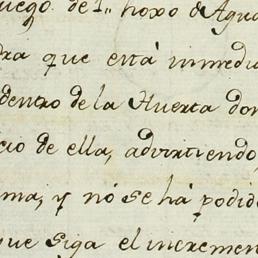 uego de 1" hoxo de Agua
dra que está inmedi
dentro de la Huerta don
cio de ella, advirtiendo
ma, y nó se há podid
que siga el incremen